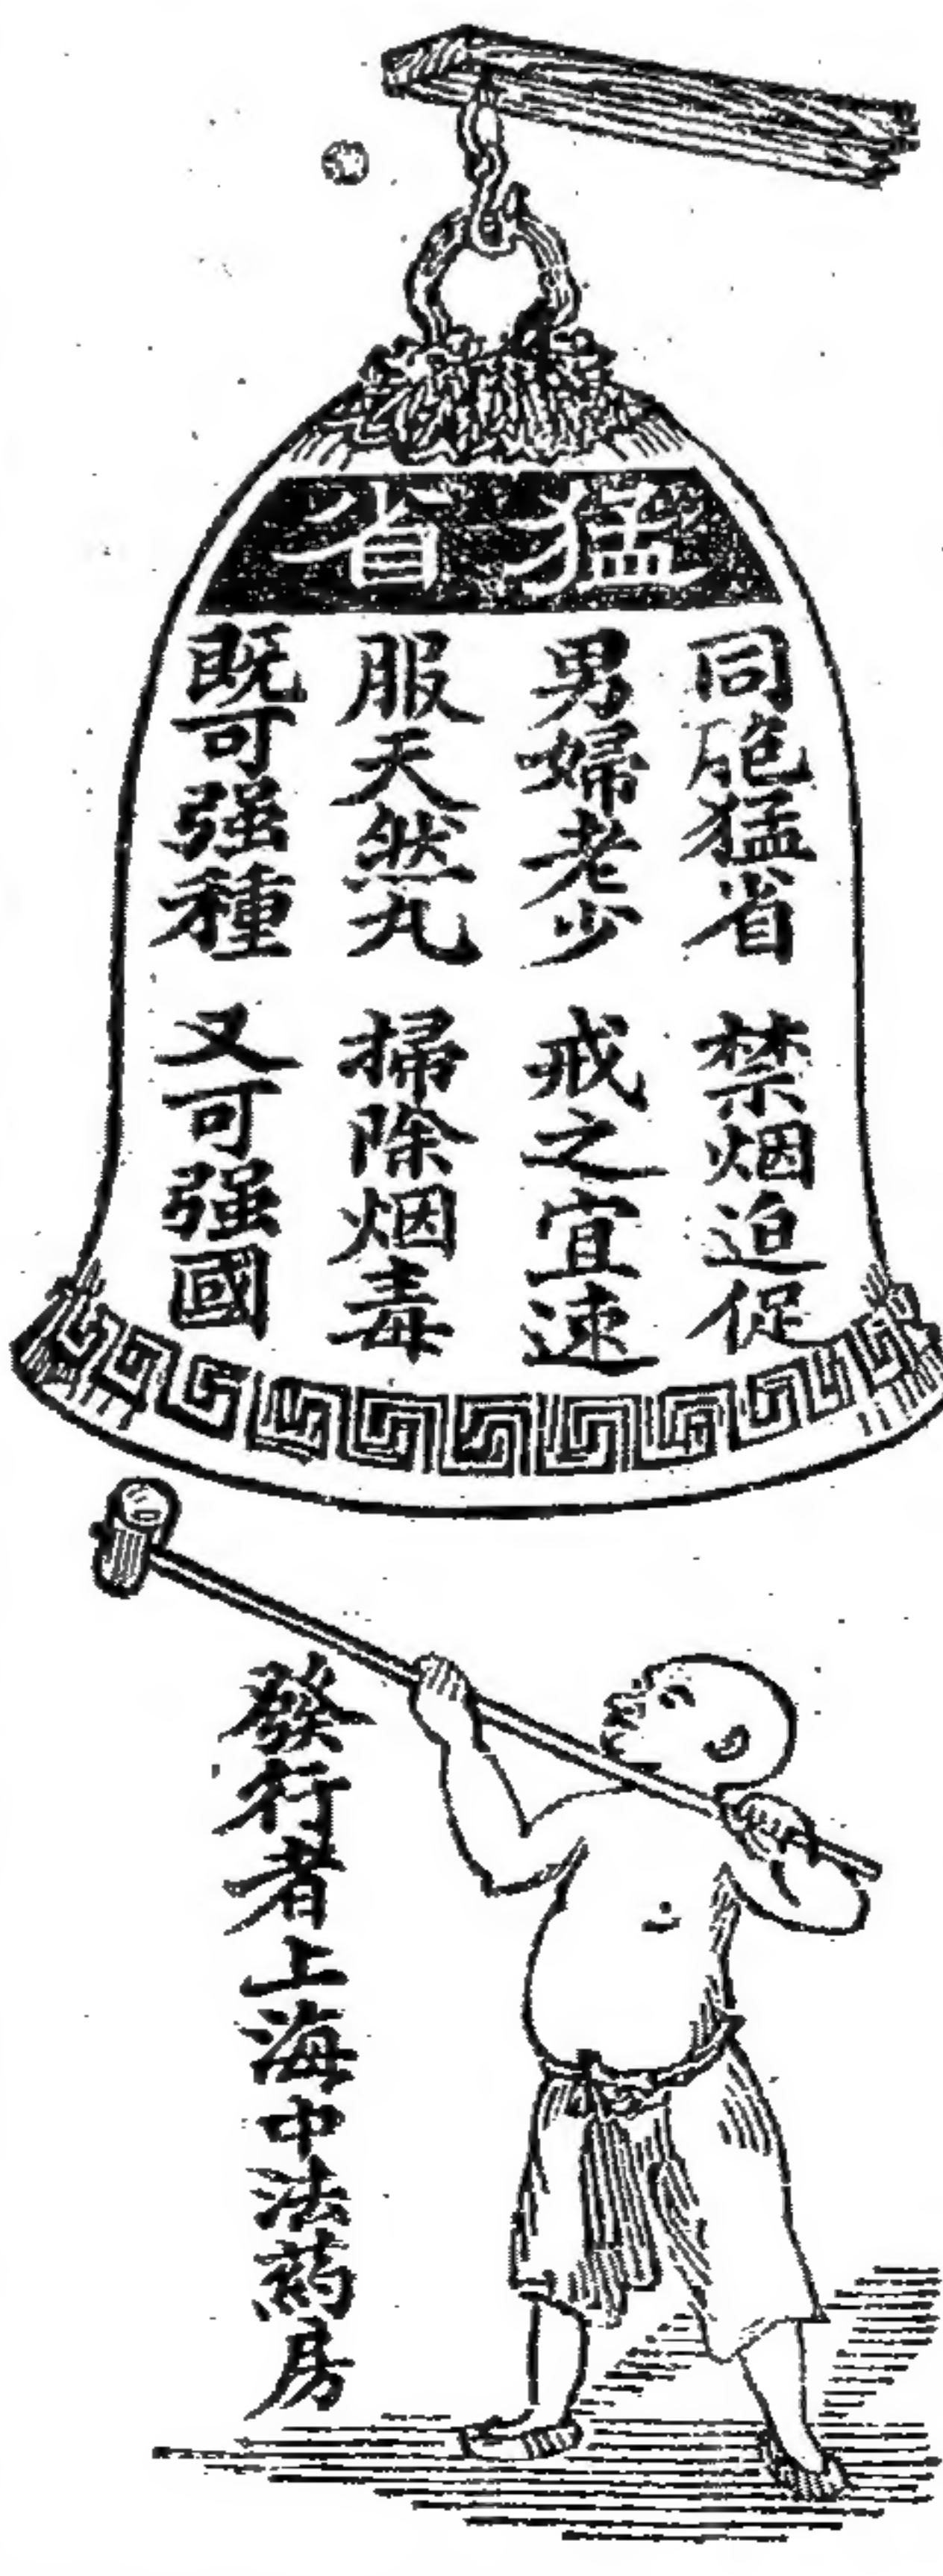 猛省
同胞猛省 禁烟迫促
男婦老少 戒之宜速
服天然丸 掃除烟毒
既可强種 又可强國
發行者上海中法葯房